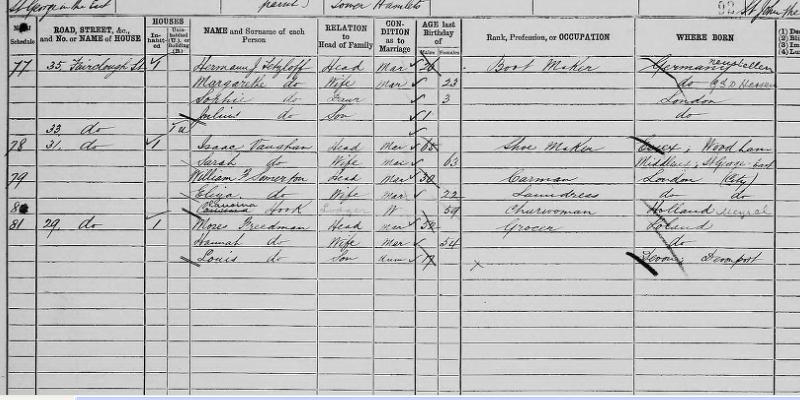 St George in the East Tower Hamlets St John the
Schedule ROAD, STREET, &c., and No. or NAME of HOUSE HOUSES In-habit-ed Unin-habited (U.), or Building (B.) NAME and Surname of each Person RELATION to Head of Family CON-DITION as to Marriage AGE last Birthday of Males Females Rank, Profession, or OCCUPATION WHERE BORN
77 35, Fairclough St 1 Hermann J Head Mar Boot Maker Germany
Margarethe do Wife Mar 23 do Hessen
Sophie do Daur 3 London
Julius do Son 1 do
33 do 1 u
78 31, do 1 Isaac Vaughan Head Mar Shoe Maker Essex;
Sarah do Wife Mar 63 Middlesex; St George East
79 William Somerton Head Mar 30 Carman London (City)
Eliza do Wife Mar 22 Laundress do do
80 Hook Lodger W 59 Charwoman Holland
81 29, do 1 Moses Freedman Head Mar Grocer Poland
Hannah do Wife Mar 54 do
Louis do Son Unm 17 x Devon; Devonport